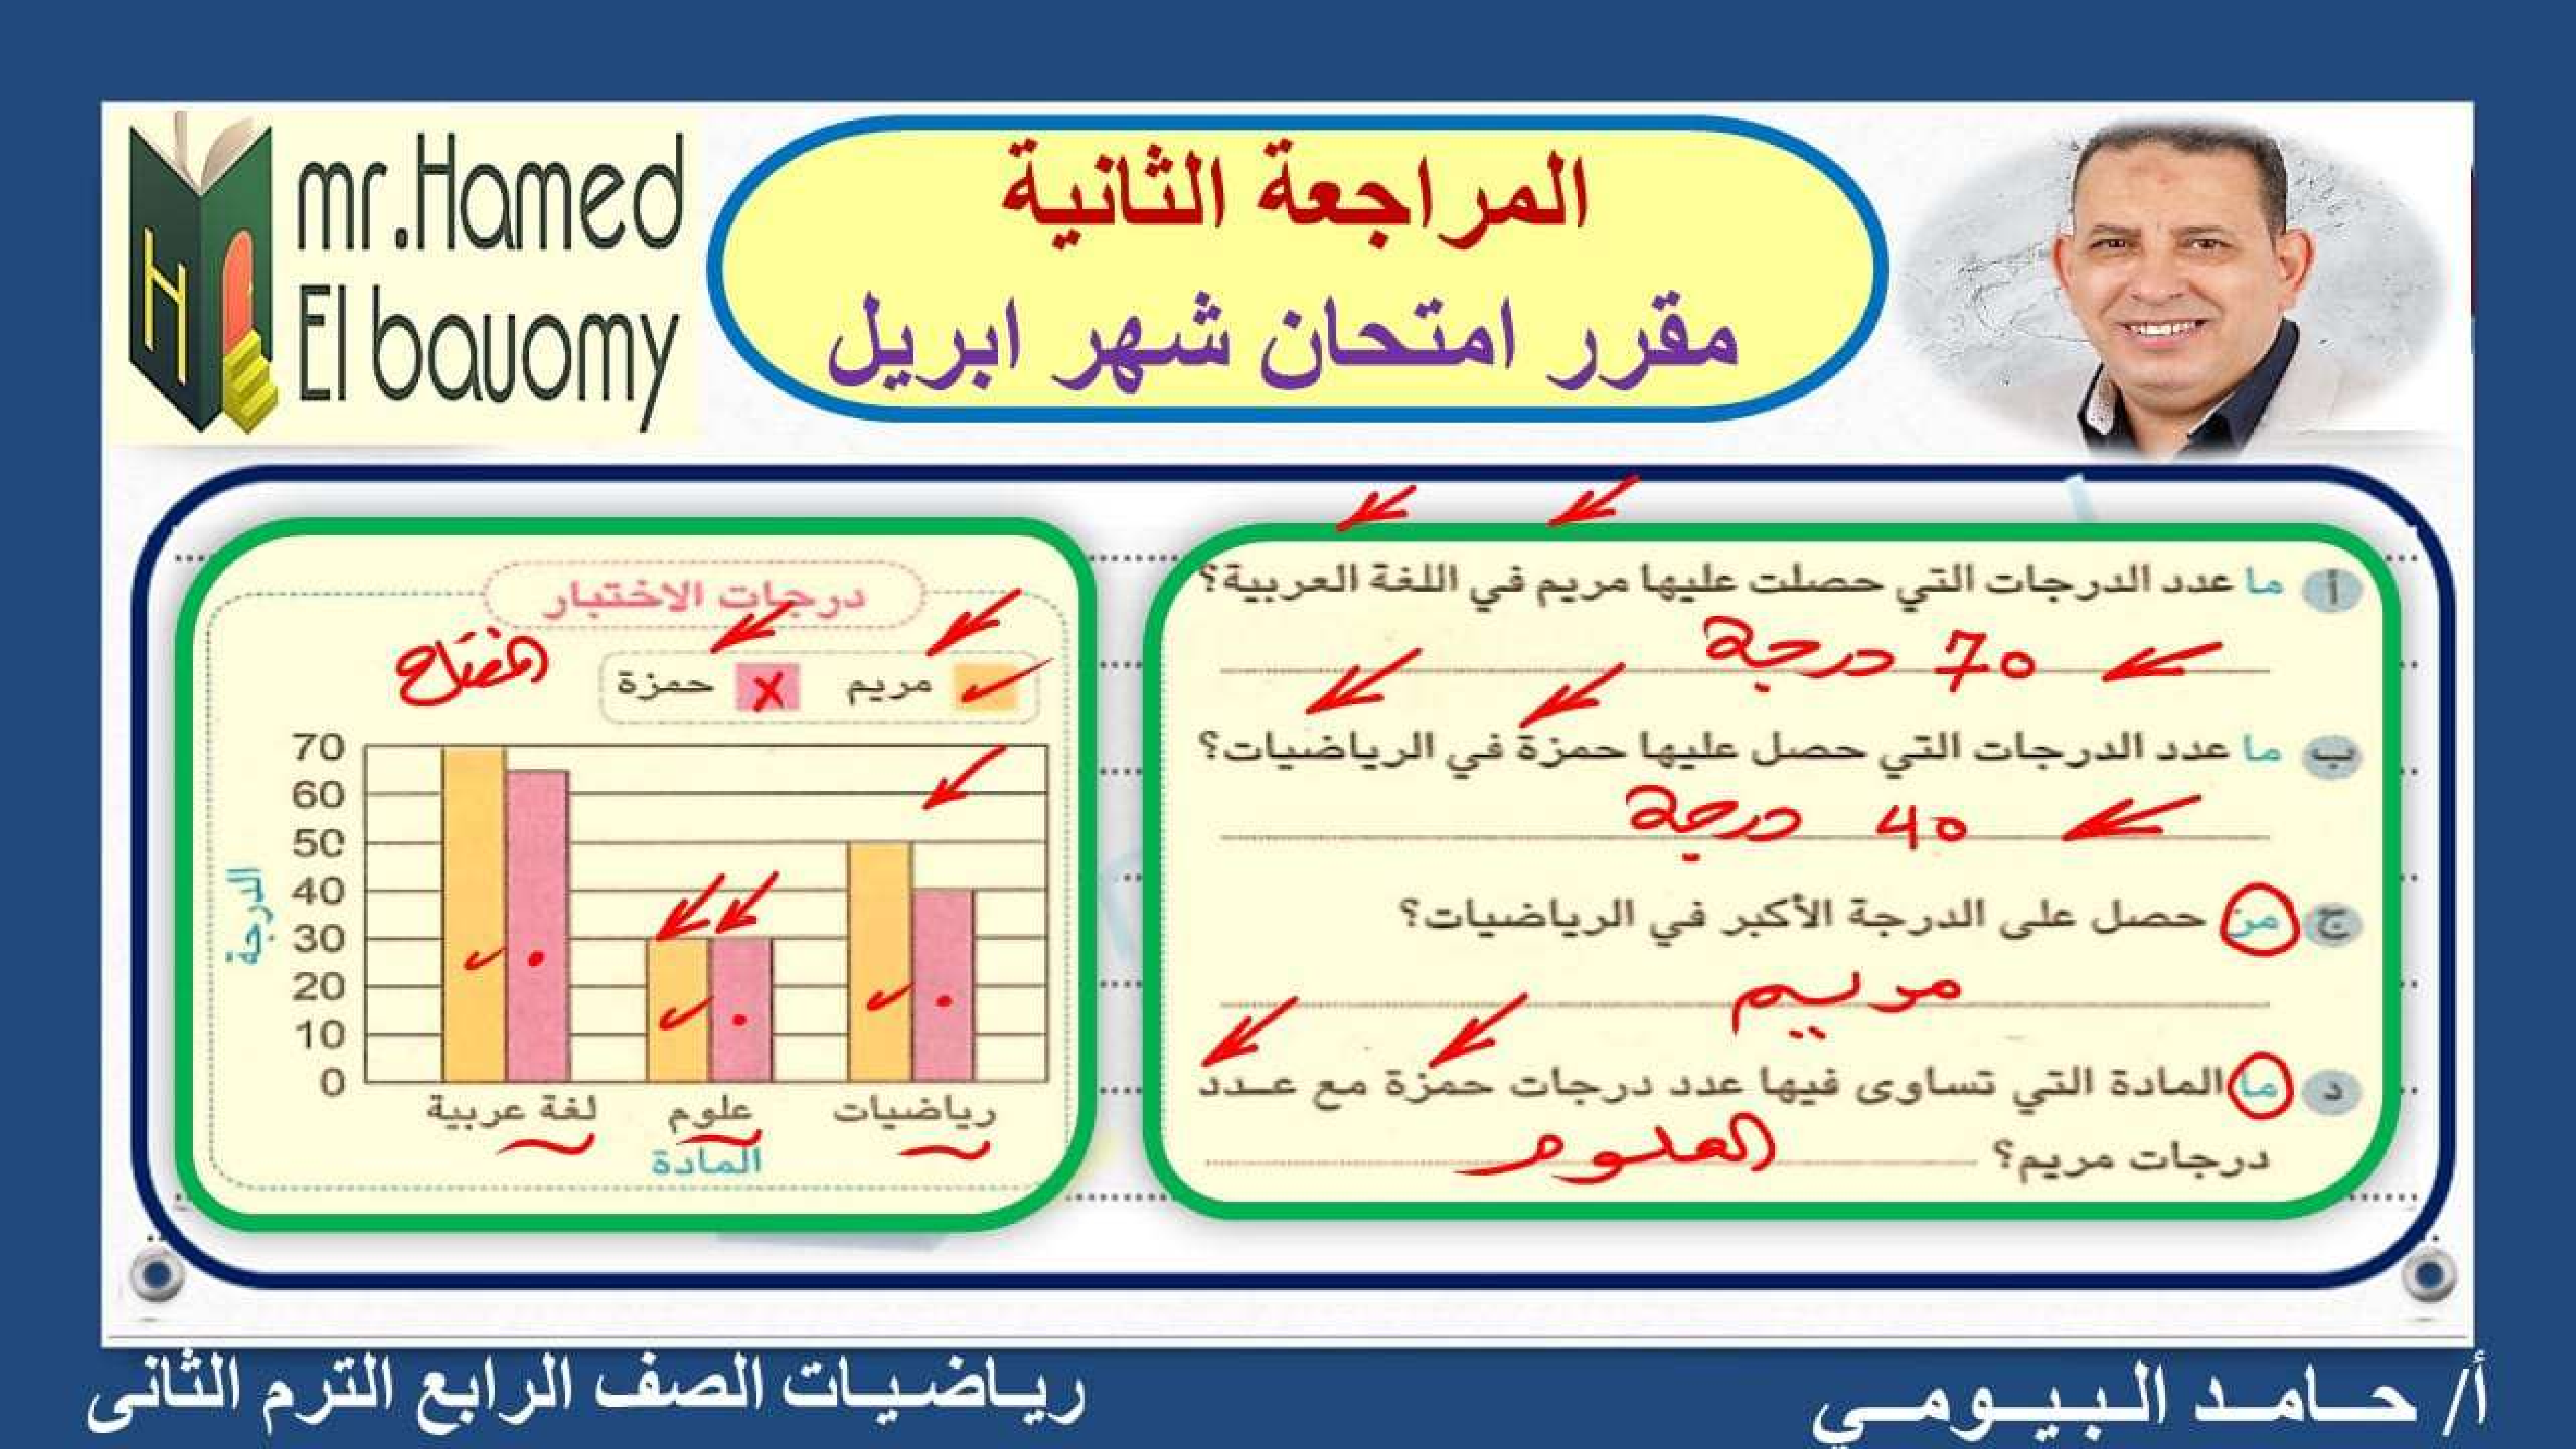 mr.Hamed
El bauomy
المراجعة الثانية
مقرر امتحان شهر ابريل
أ ما عدد الدرجات التي حصلت عليها مريم في اللغة العربية؟
70 درجة
ب ما عدد الدرجات التي حصل عليها حمزة في الرياضيات؟
40 درجة
ج من حصل على الدرجة الأكبر في الرياضيات؟
مريم
د ما المادة التي تساوى فيها عدد درجات حمزة مع عـدد
درجات مريم؟ العلوم
درجات الاختبار
المفتاح
مريم حمزة
70
60
50
40
30
20
10
0
الدرجة
لغة عربية علوم رياضيات
المادة
أ/ حـامـد الـبـيـومـي
ريـاضـيـات الصف الرابع الترم الثانى